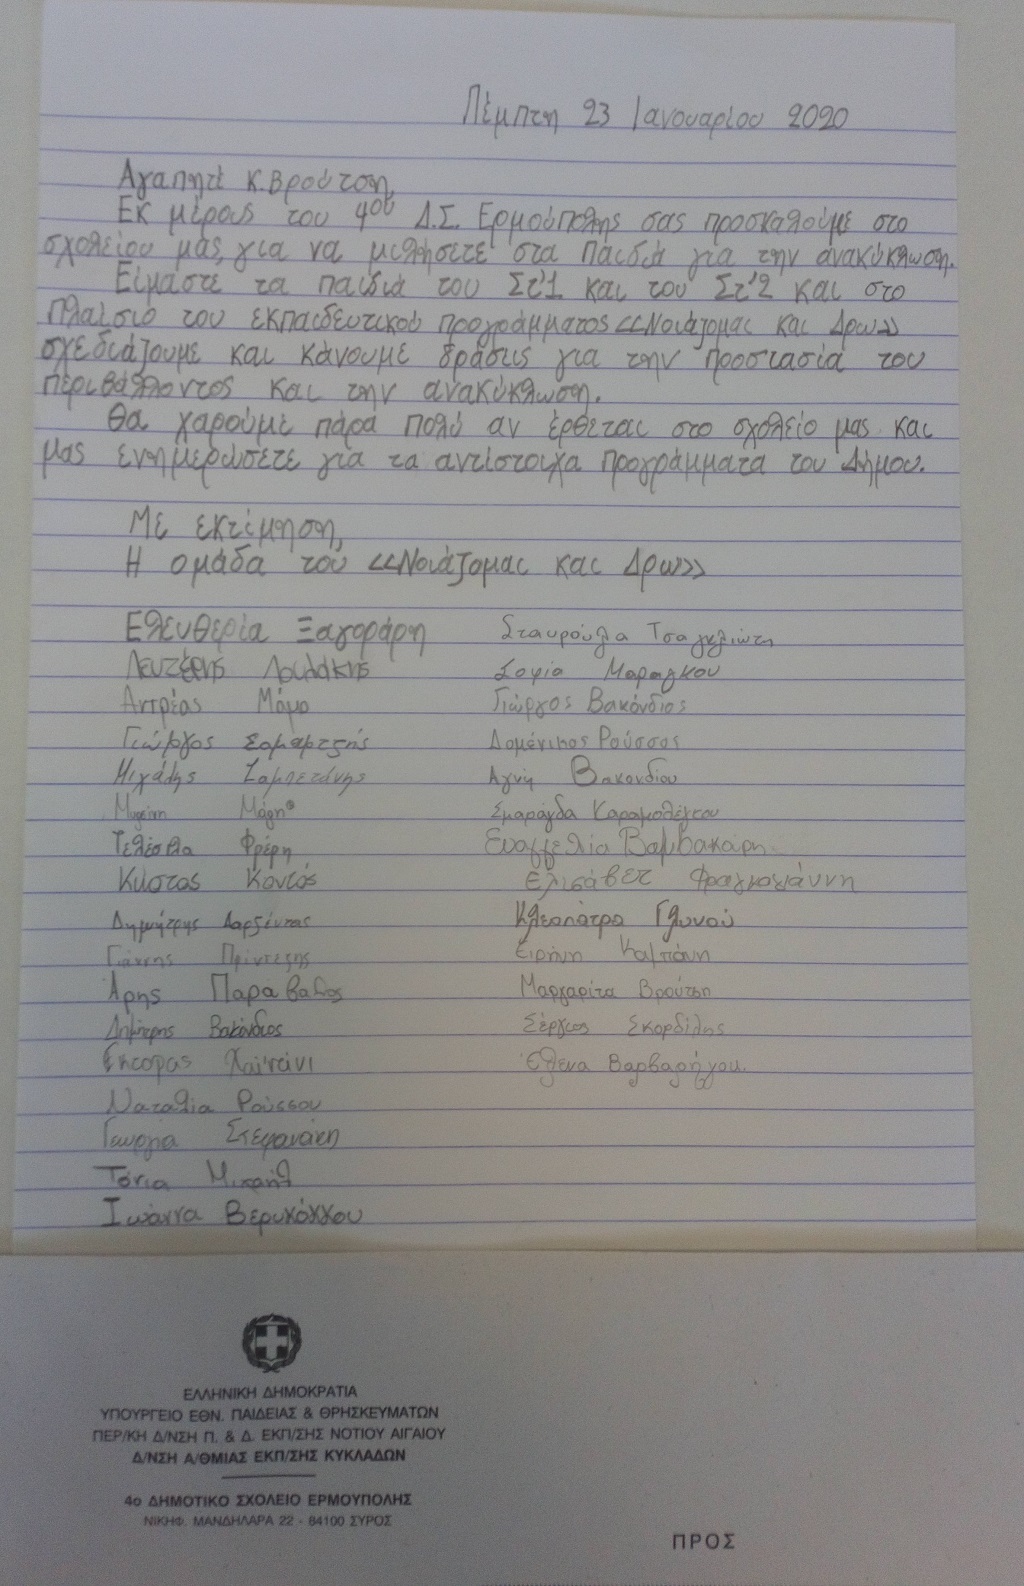 Πέμπτη 23 Ιανουαρίου 2020
Αγαπητέ Κ. Βρούτση,
Εκ μέρους του 4ου Δ.Σ. Ερμούπολης σας προσκαλούμε στο
σχολείου μας για να μιλήσετε στα παιδιά για την ανακύκλωση.
Είμαστε τα παιδιά του Στ'1 και του Στ'2 και στο
πλαίσιο του εκπαιδευτικού προγράμματος <<Νοιάζομαι και Δρω>>
σχεδιάζουμε και κάνουμε δράσεις για την προστασία του
περιβάλλοντος και την ανακύκλωση.
Θα χαρούμε πάρα πολύ αν έρθεται στο σχολείο μας και
μας ενημερώσετε για τα αντίστοιχα προγράμματα του Δήμου.
Με εκτίμηση,
Η ομάδα του <<Νοιάζομαι και Δρω>>
Ελευθερία Ξαγοράρη
Λευτέρης Λουλάκης
Αντρέας Μάμο
Γιώργος
Μιχάλης Ζαμπετάνης
Τελέσιλα Φρέρη
Κώστας Κοντός
Δημήτρης Δαρζέντας
Γιάννης Πρίντεζης
Άρης Παραβαλος
Δημήτρης Βακόνδιος
Ναταλία Ρούσσου
Γεωργία Στεφανάκη
Τόνια Μιχαήλ
Ιωάννα Βερυκόκκου
Σταυρούλα Τσαγκλιώτη
Σοφία Μαραγκου
Γιώργος Βακόνδιος
Δομένικος Ρούσσος
Αγνή Βακονδίου
Σμαράγδα Καραμολέγκου
Ευαγγελία Βαμβακάρη
Ελισάβετ Φραγκογιάννη
Κλεοπάτρα Γλυνού
Ειρήνη Καμπάνη
Μαργαρίτα Βρούτση
Σέργιος Σκορδίλης
Έλενα Βαρβαρήγου
ΕΛΛΗΝΙΚΗ ΔΗΜΟΚΡΑΤΙΑ
ΥΠΟΥΡΓΕΙΟ ΕΘΝ. ΠΑΙΔΕΙΑΣ & ΘΡΗΣΚΕΥΜΑΤΩΝ
ΠΕΡ/ΚΗ Δ/ΝΣΗ Π. & Δ. ΕΚΠ/ΣΗΣ ΝΟΤΙΟΥ ΑΙΓΑΙΟΥ
Δ/ΝΣΗ Α/ΘΜΙΑΣ ΕΚΠ/ΣΗΣ ΚΥΚΛΑΔΩΝ
4ο ΔΗΜΟΤΙΚΟ ΣΧΟΛΕΙΟ ΕΡΜΟΥΠΟΛΗΣ
ΝΙΚΗΦ. ΜΑΝΔΗΛΑΡΑ 22 - 84100 ΣΥΡΟΣ
ΠΡΟΣ